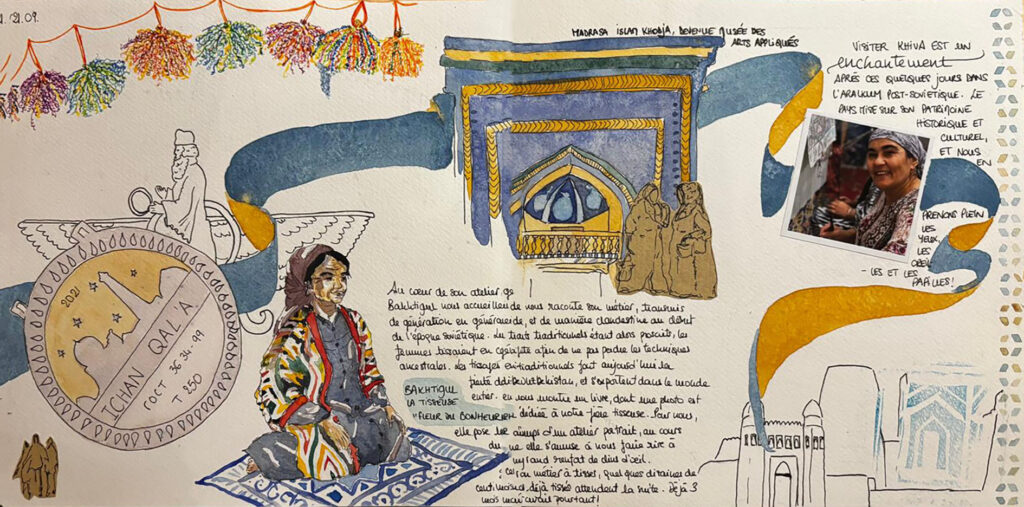 21.09.
MADRASA ISLAM KHODJA, DEVENUE MUSÉE DES
ARTS APPLIQUÉS
VISITER KHIVA EST UN
enchantement
APRÈS CES QUELQUES JOURS DANS
L'ARALKUM POST-SOVIETIQUE. LE
PAYS MISE SUR SON PATRIMOINE
HISTORIQUE ET
CULTUREL,
ET NOUS
EN
PRENONS PLEIN
LES
YEUX,
LES
- LES ET LES
PAPILLES!
2021
ICHAN QAL A
ГОСТ 36-34-99
T 250
Au cœur de son atelier,
Bakhtigul nous accueille et nous raconte son métier, transmis
de génération en génération, et de manière clandestine au début
de l'époque soviétique. Les traits traditionnels étant alors proscrits, les
femmes tissaient en cachette afin de ne pas perdre les techniques
ancestrales. Les tissages traditionnels font aujourd'hui la
fierté de l'Ouzbékistan, et s'exportent dans le monde
entier. nous montre un livre, dont une photo est
BAKHTIGUL
LA TISSEUSE
"FLEUR DU BONHEUR"
dédiée à notre jolie tisseuse. Pour nous,
elle pose le temps d'un atelier portrait, au cours
du elle s'amuse à nous faire rire à
grand renfort de clins d'oeil.
métier à tisser, quelques dizaines de
centimètres déjà tissés attendent la suite. Déjà 3
mois pourtant!